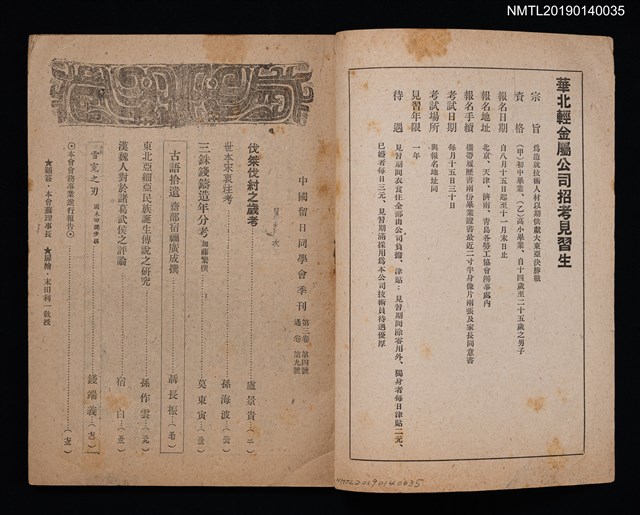 NMTL20190140035
華北輕金屬公司招考見習生
宗旨 為造就技術人材以期供獻大東亞決勝戰
資格 (甲)初中畢業、(乙)高小畢業、自十四歲至二十五歲之男子
報名日期 自八月十五日起至十一月末日止
報名地址 北京、天津、濟南、青島各勞工協會辦事處內
報名手續 攜帶履歷書兩份畢業證書最近二寸半身像片兩張及家長同意書
考試日期 每月十五日三十日
考試場所 與報名地址同
見習年限 一年
待遇 見習期間衣食住全部由公司負擔、津貼:見習期間除害用外、獨身者每日津貼二元、
已婚者每日三元、見習期滿採用為本公司技術員待遇優厚
中國留日同學會季刊 第三卷 第四號 通卷 第九號
目次
伐桀伐紂之歲考 盧景貴
世本宋衷注考 孫海波
三銖錢鑄造年分考 加藤繁撰 莫東寅
古語拾遺 齋部宿禰廣成撰 謝長振
東北亞細亞民族誕生傳說之研究 孫作雲
漢魏人對於諸葛武侯之評論 宿白
雪寃之刃 錢端義
◎本會會務事業進行報告◎
★題簽・本會蕭理事長 ★扉繪・末田利一教授
NMTL20190140035